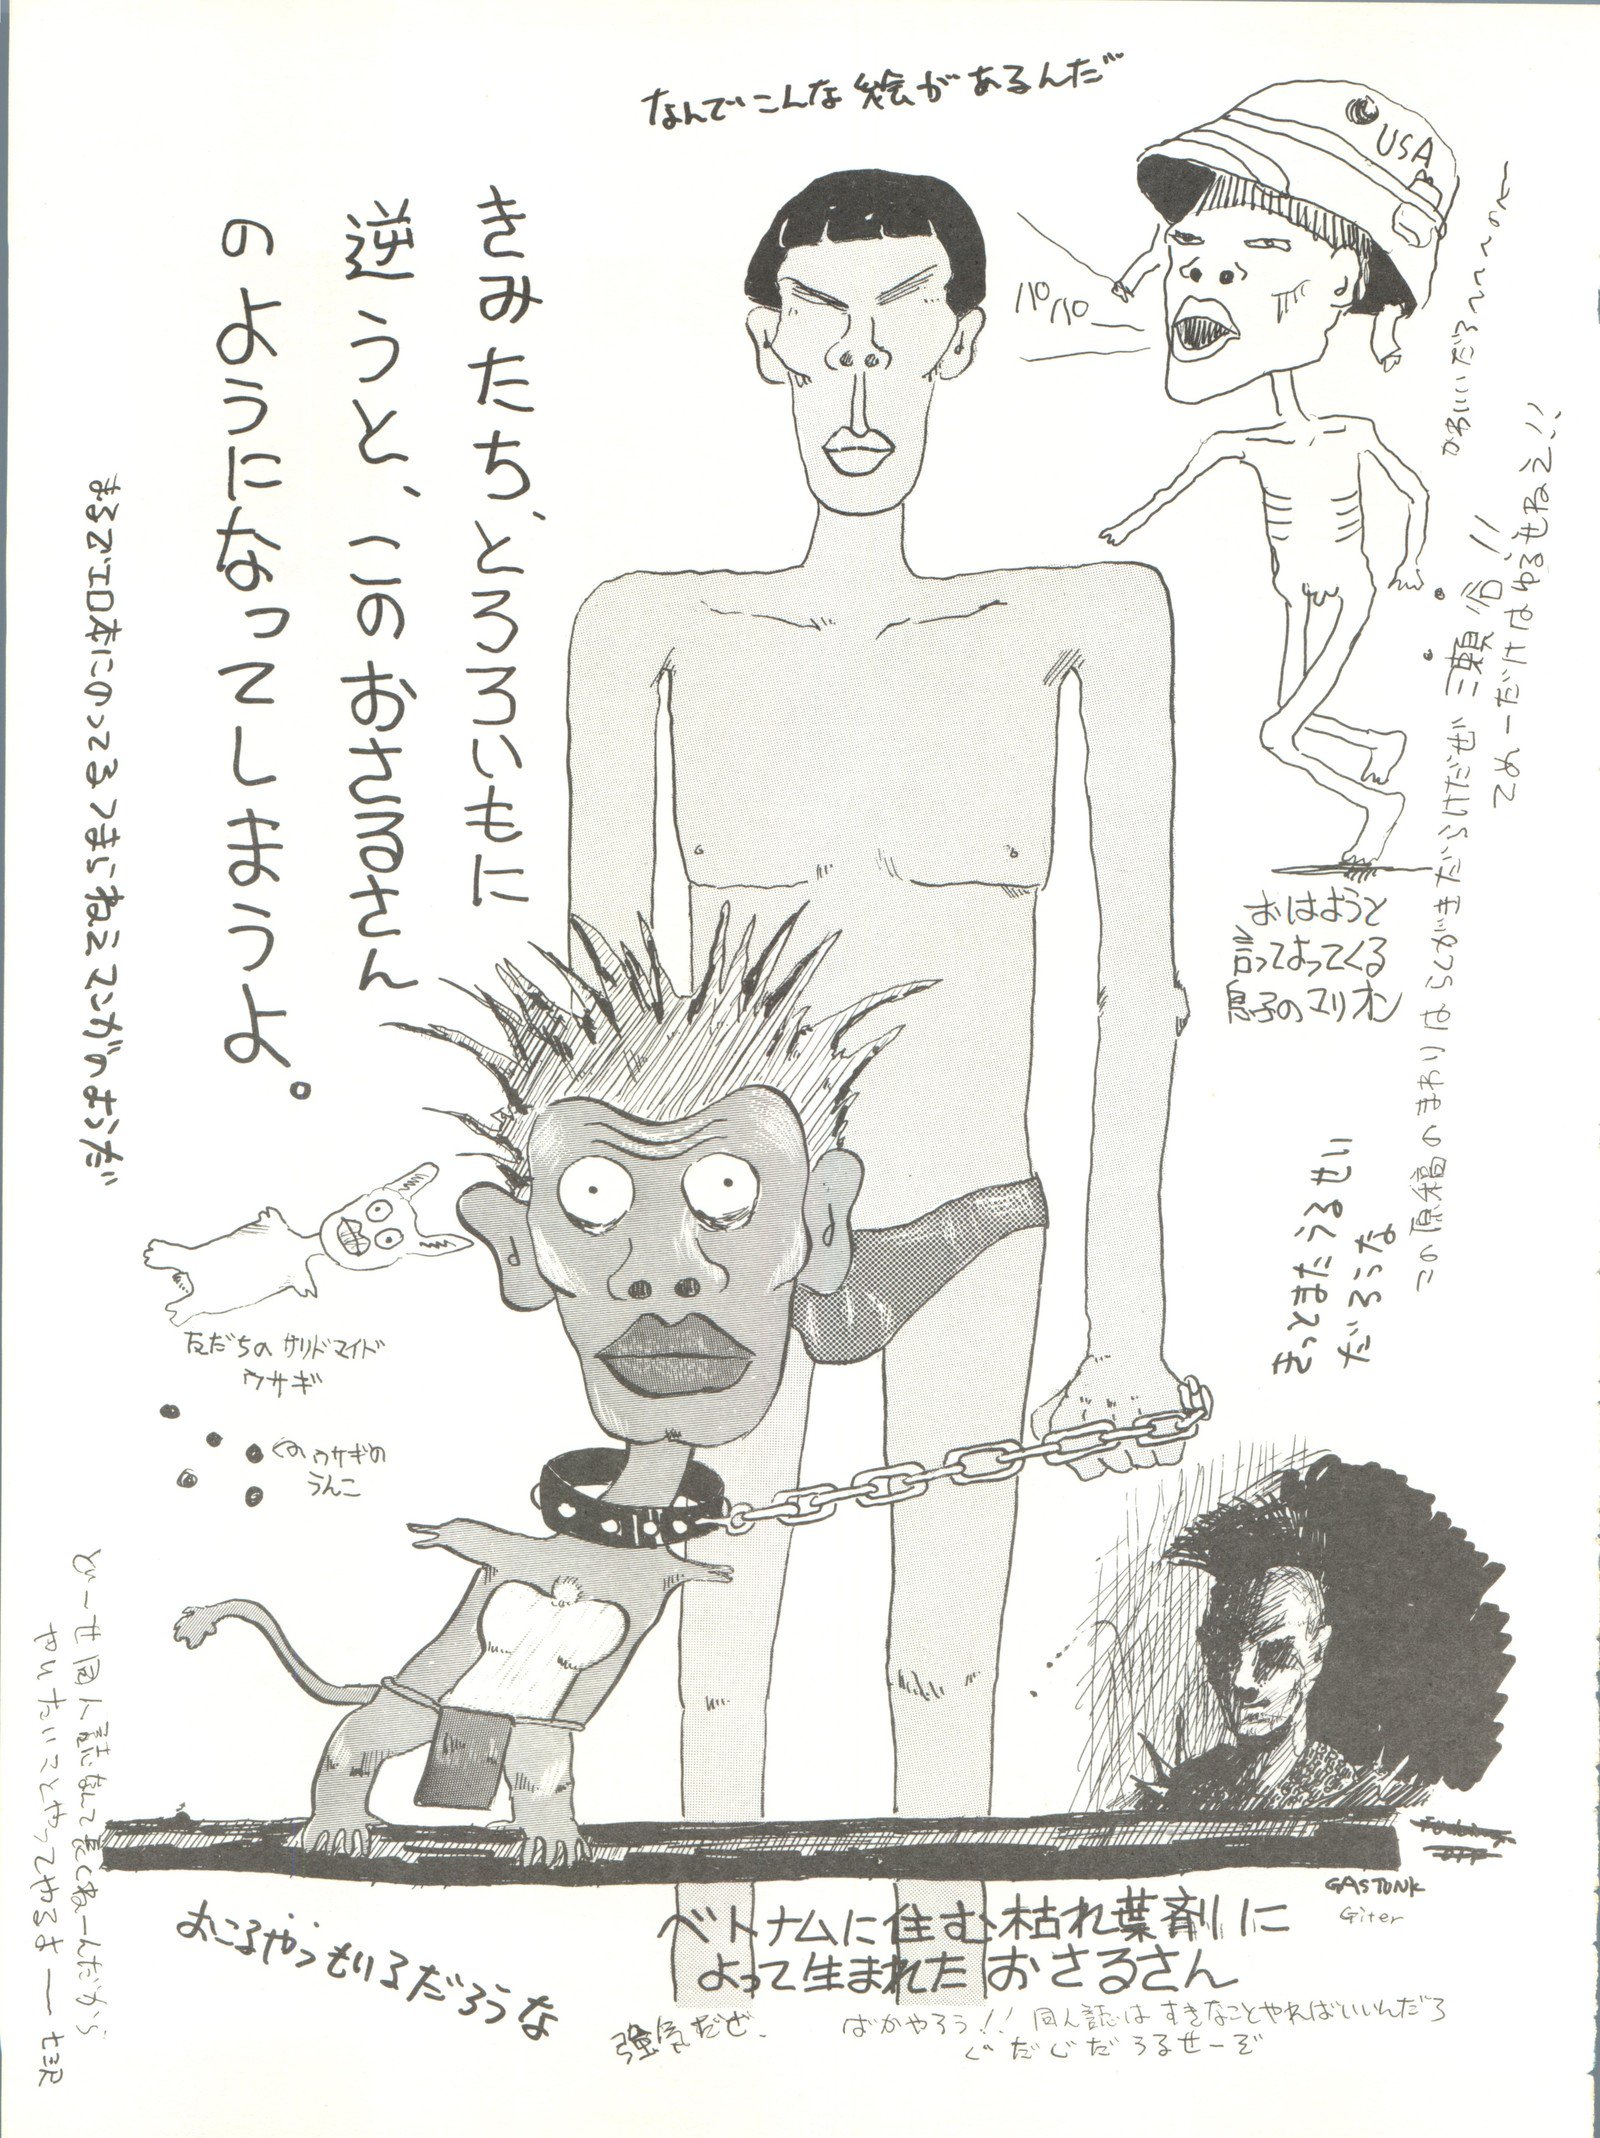 なんでこんな絵があるんだ
USA
パパー
かわいいだろ～～～の～
きみたち、とろろいもに
逆うと、このおさるさん
のようになってしまうよ。
まるでエロ本にのってるつまらねえマンガのようだ
てめーだけはゆるせねえ!!
この原稿のまわりはらくがきだらけだぜ 三瀬
おはようと
言ってよってくる
息子のマリオン
きっとまたうるせい
だろうな
友だちのサリドマイド
ウサギ
ウサギの
うんこ
どーせ同人誌なんて長くねーんだから
やりたいことやってやるさ―
GASTUNK
Giter
ベトナムに住む枯れ葉剤に
よって生まれたおさるさん
おこるやつもいるだろうな
強気だぜ、
ばかやろう!! 同人誌はすきなことやればいいんだろ
ぐだぐだうるせーぞ